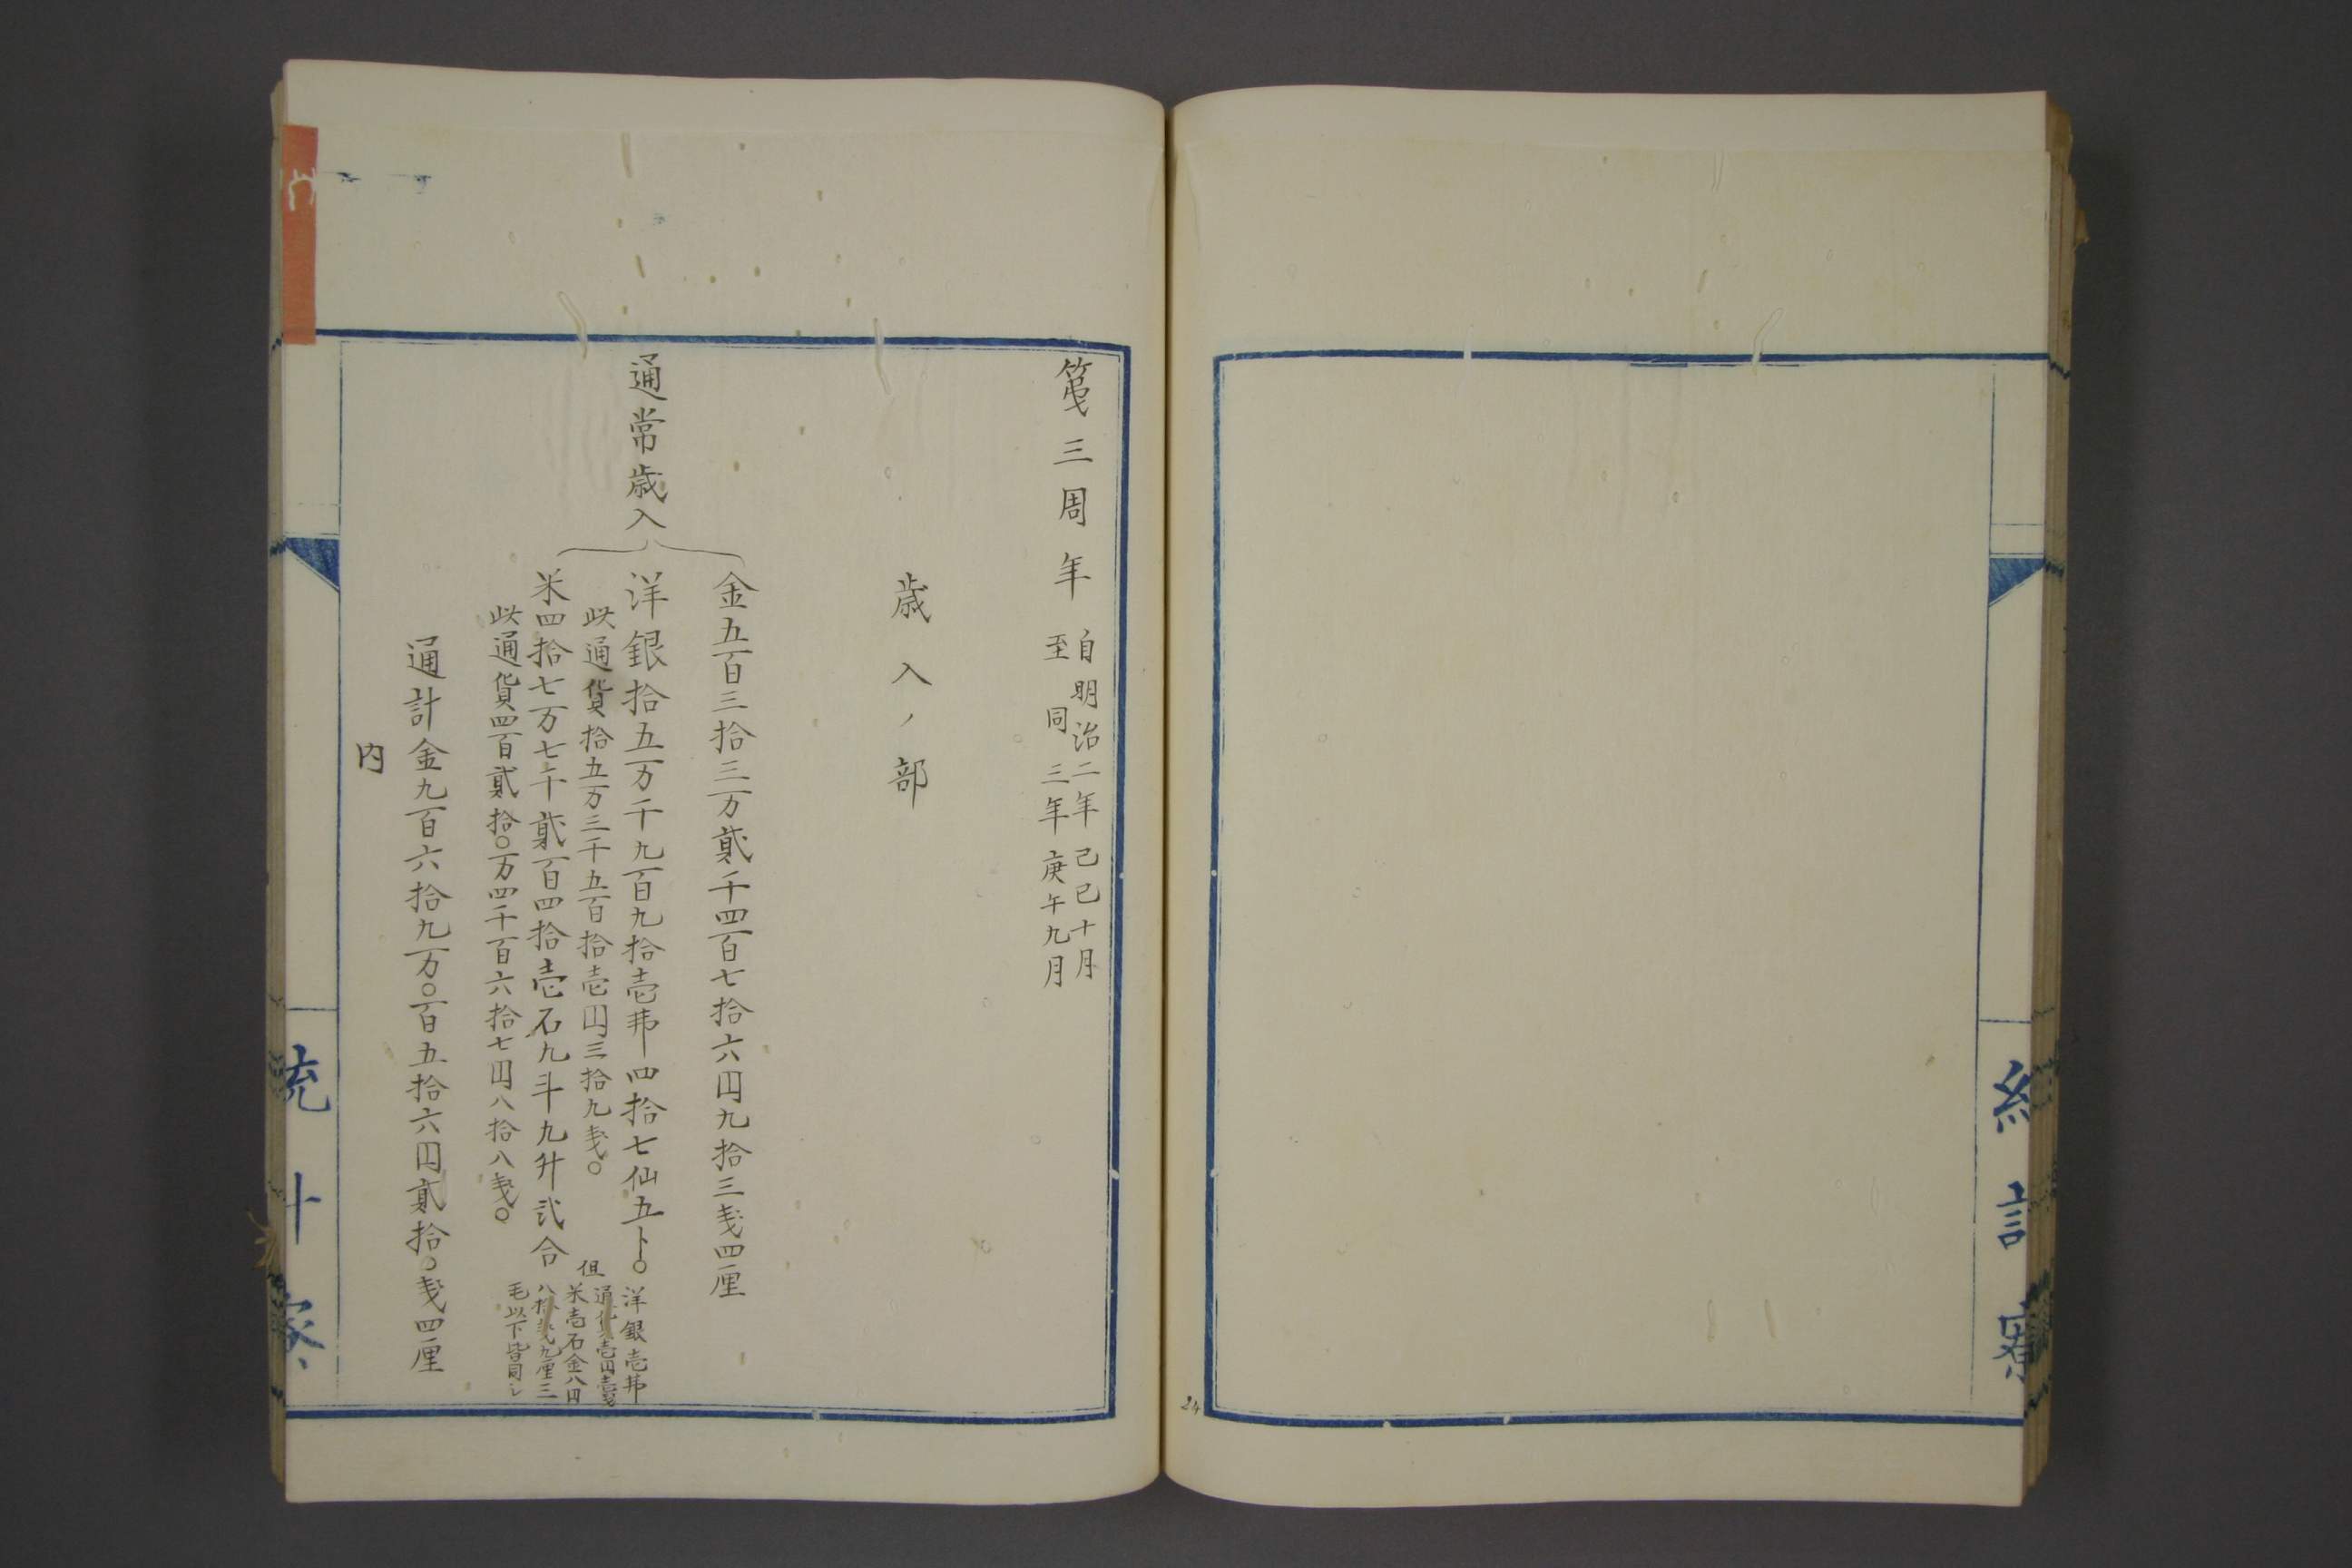 24
統計寮
第三周年
自明治二年己巳十月
至同三年庚午九月
歳入ノ部
通常歳入
金五百三拾三万貳千四百七拾六円九拾三銭四厘
洋銀拾五万千九百九拾壱弗四拾七仙五ト〇
此通貨拾五万三千五百拾壱円三拾九銭〇
米四拾七万七千貳百四拾壱石九斗九升弐合
此通貨四百貳拾〇万四千百六拾七円八拾八銭〇
但
洋銀壱弗
通貨壱円壱銭
米壱石金八円
八拾銭九厘三
毛以下皆同シ
通計金九百六拾九万〇百五拾六円貳拾〇銭四厘
内
統計寮